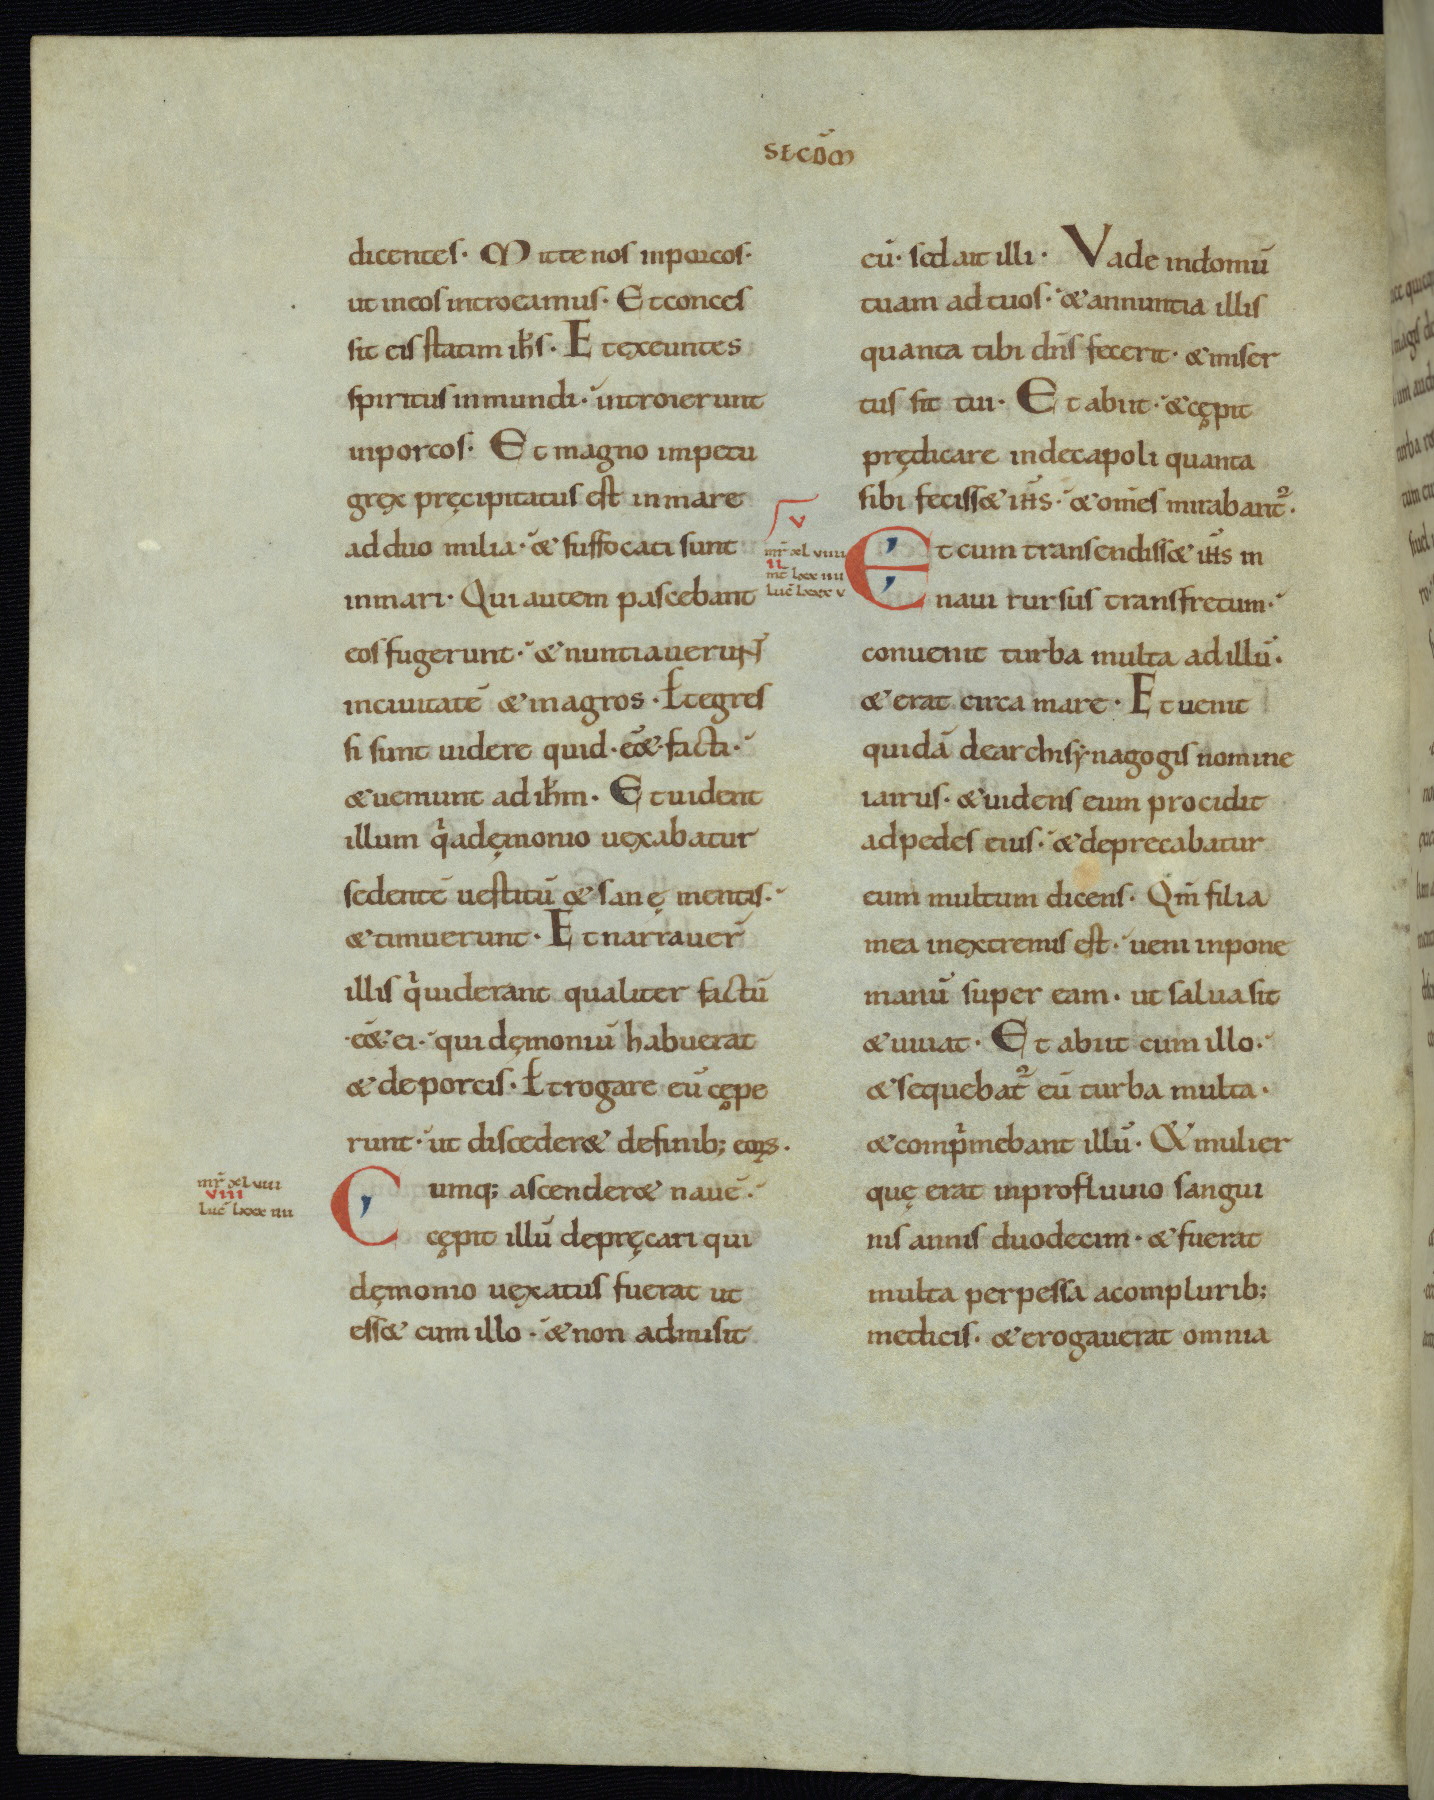 SECŪDM
dicentes. Mitte nos inporcos.
ut ineos introeamus. Et conces
sit eis statim ihs̄. Et exeuntes
spiritus inmundi. introierunt
inporcos. Et magno impetu
gręx pręcipitatus est inmare
adduo milia. & suffocati sunt
inmari. Qui autem pascebant
eos fugerunt. & nuntiauerunt
inciuitatē & inagros. Et egres
si sunt uidere quid. eēt. facti.
& ueniunt ad ihm̄. Et uident
illum qi adęmonio uexabatur
sedentē uestitū & sanę mentis.
& timuerunt. Et narrauer̄
illis qi uiderant qualiter factū
eēt ei. qui dęmoniū habuerat
& deporcis. Et rogare eū cępe
runt. ut discederet definib; eoꝝ.
mr̄ xlviiii
VIII
luc̄ lxxxiiii
Cumq; ascenderet nauē.
cępit illū depręcari qui
dęmonio uexatus fuerat ut
esset cum illo. & non admisit
eū. sed ait illi. Vade indomū
tuam ad tuos. & annuntia illis
quanta tibi dn̄s fecerit. & miser
tus sit tui. Et abiit. & cępit
prędicare indecapoli quanta
sibi fecisset ihs̄. & om̄es mirabant᷒.
V
mr̄ xlviiii
II
mt̄ lxxiiii
luc̄ lxxxv
Et cum transendisset ihs̄ in
naui rursus transfretum.
conuenit turba multa ad illū.
& erat circa mare. Et uenit
quidā dearchisynagogis nomine
iairus. & uidens eum procidit
adpedes eius. & deprecabatur
eum multum dicens. Qm̄ filia
mea inextremis est. ueni inpone
manū super eam. ut salua sit
& uiuat. Et abiit cum illo.
& sequebat᷒ eū turba multa.
& comp̄mebant illū. Et mulier
quę erat inprofluuio sangui
nis annis duodecim. & fuerat
multa perpessa acomplurib;
medicis. & erogauerat omnia